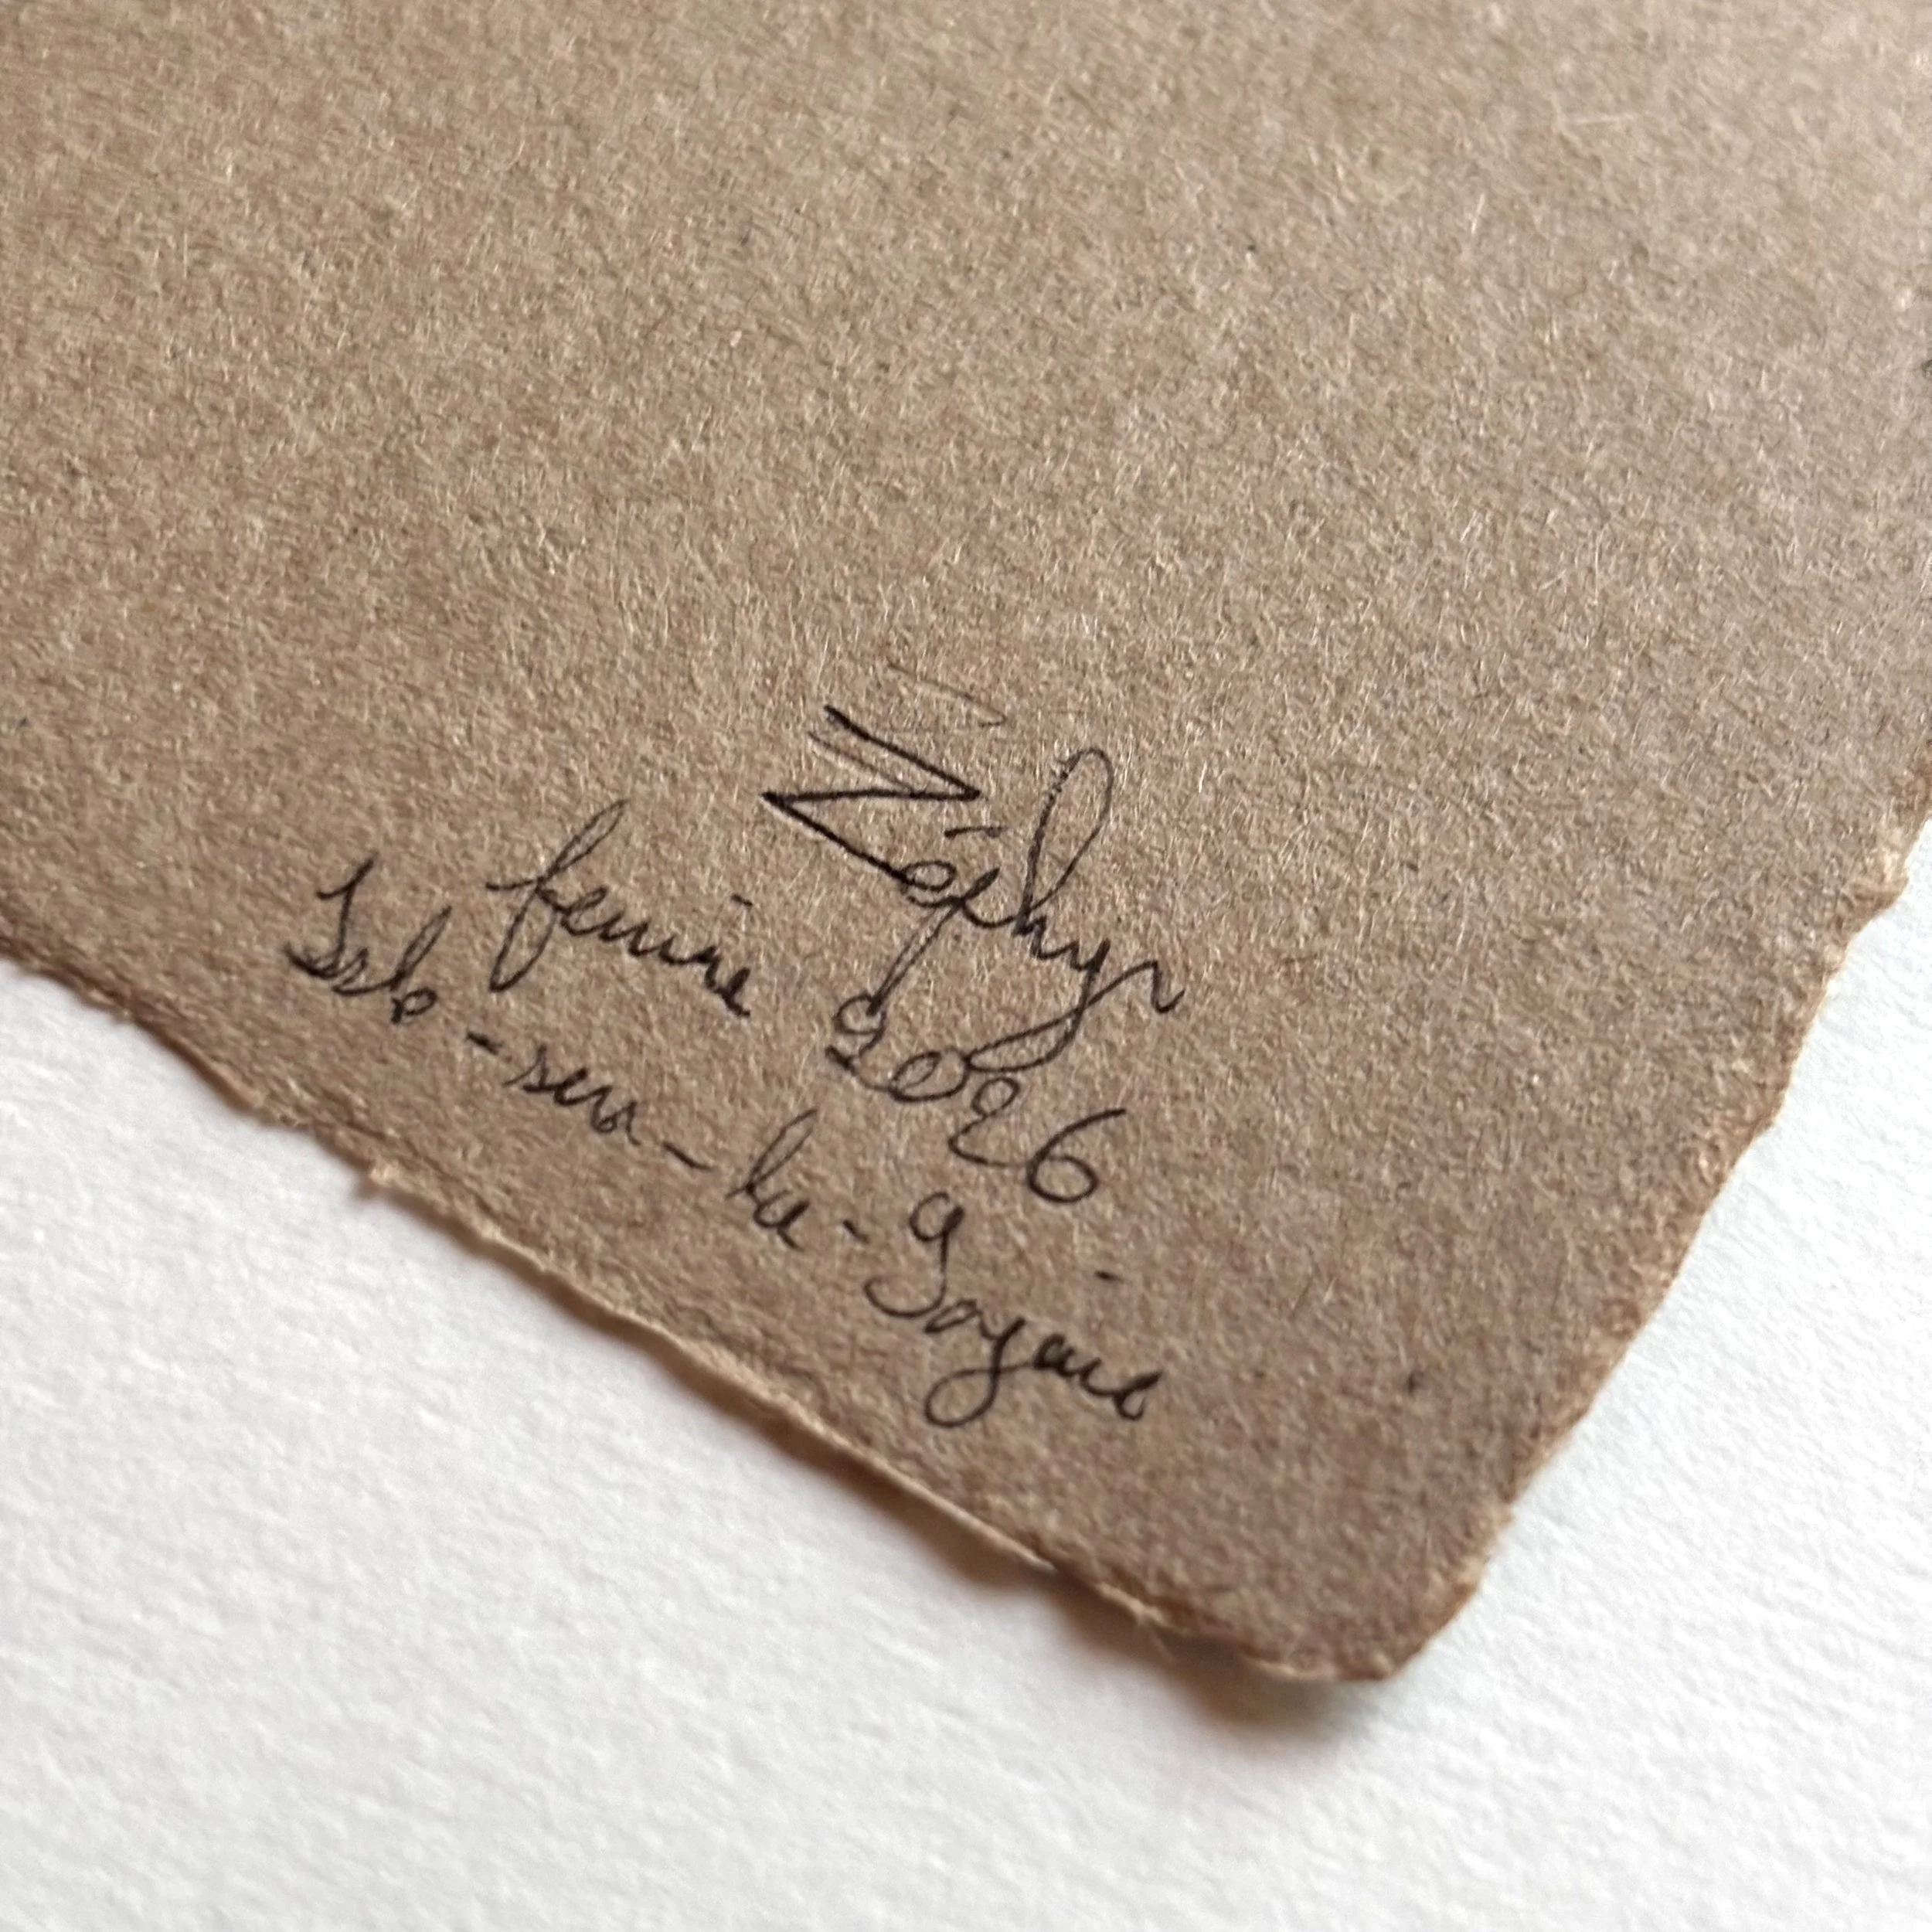 Zéphyr
février 2026
Isle-sur-la-Sorgue